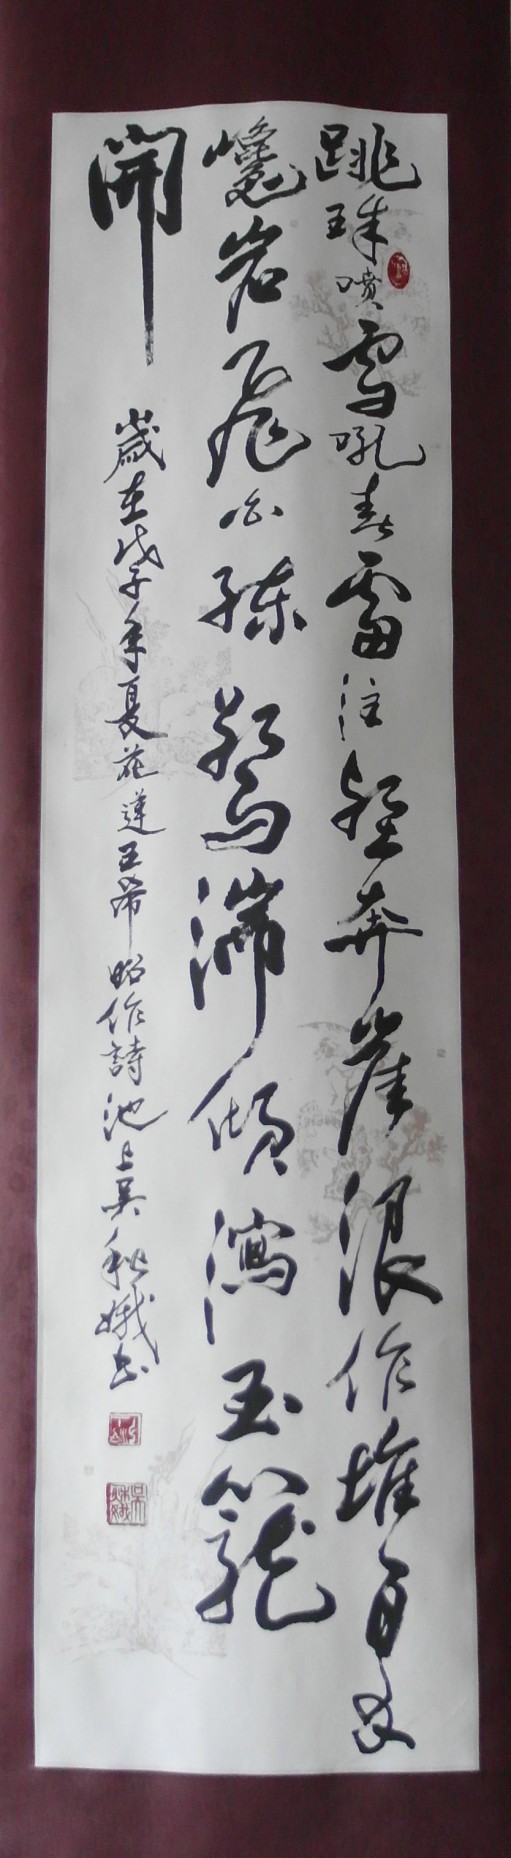 跳珠噴雪吼春雷注壑奔崖浪作堆百丈
巉岩飛白練驚湍傾瀉玉龍
開
歲在戊子年夏花蓮王希昭作詩池上吳秋娥書